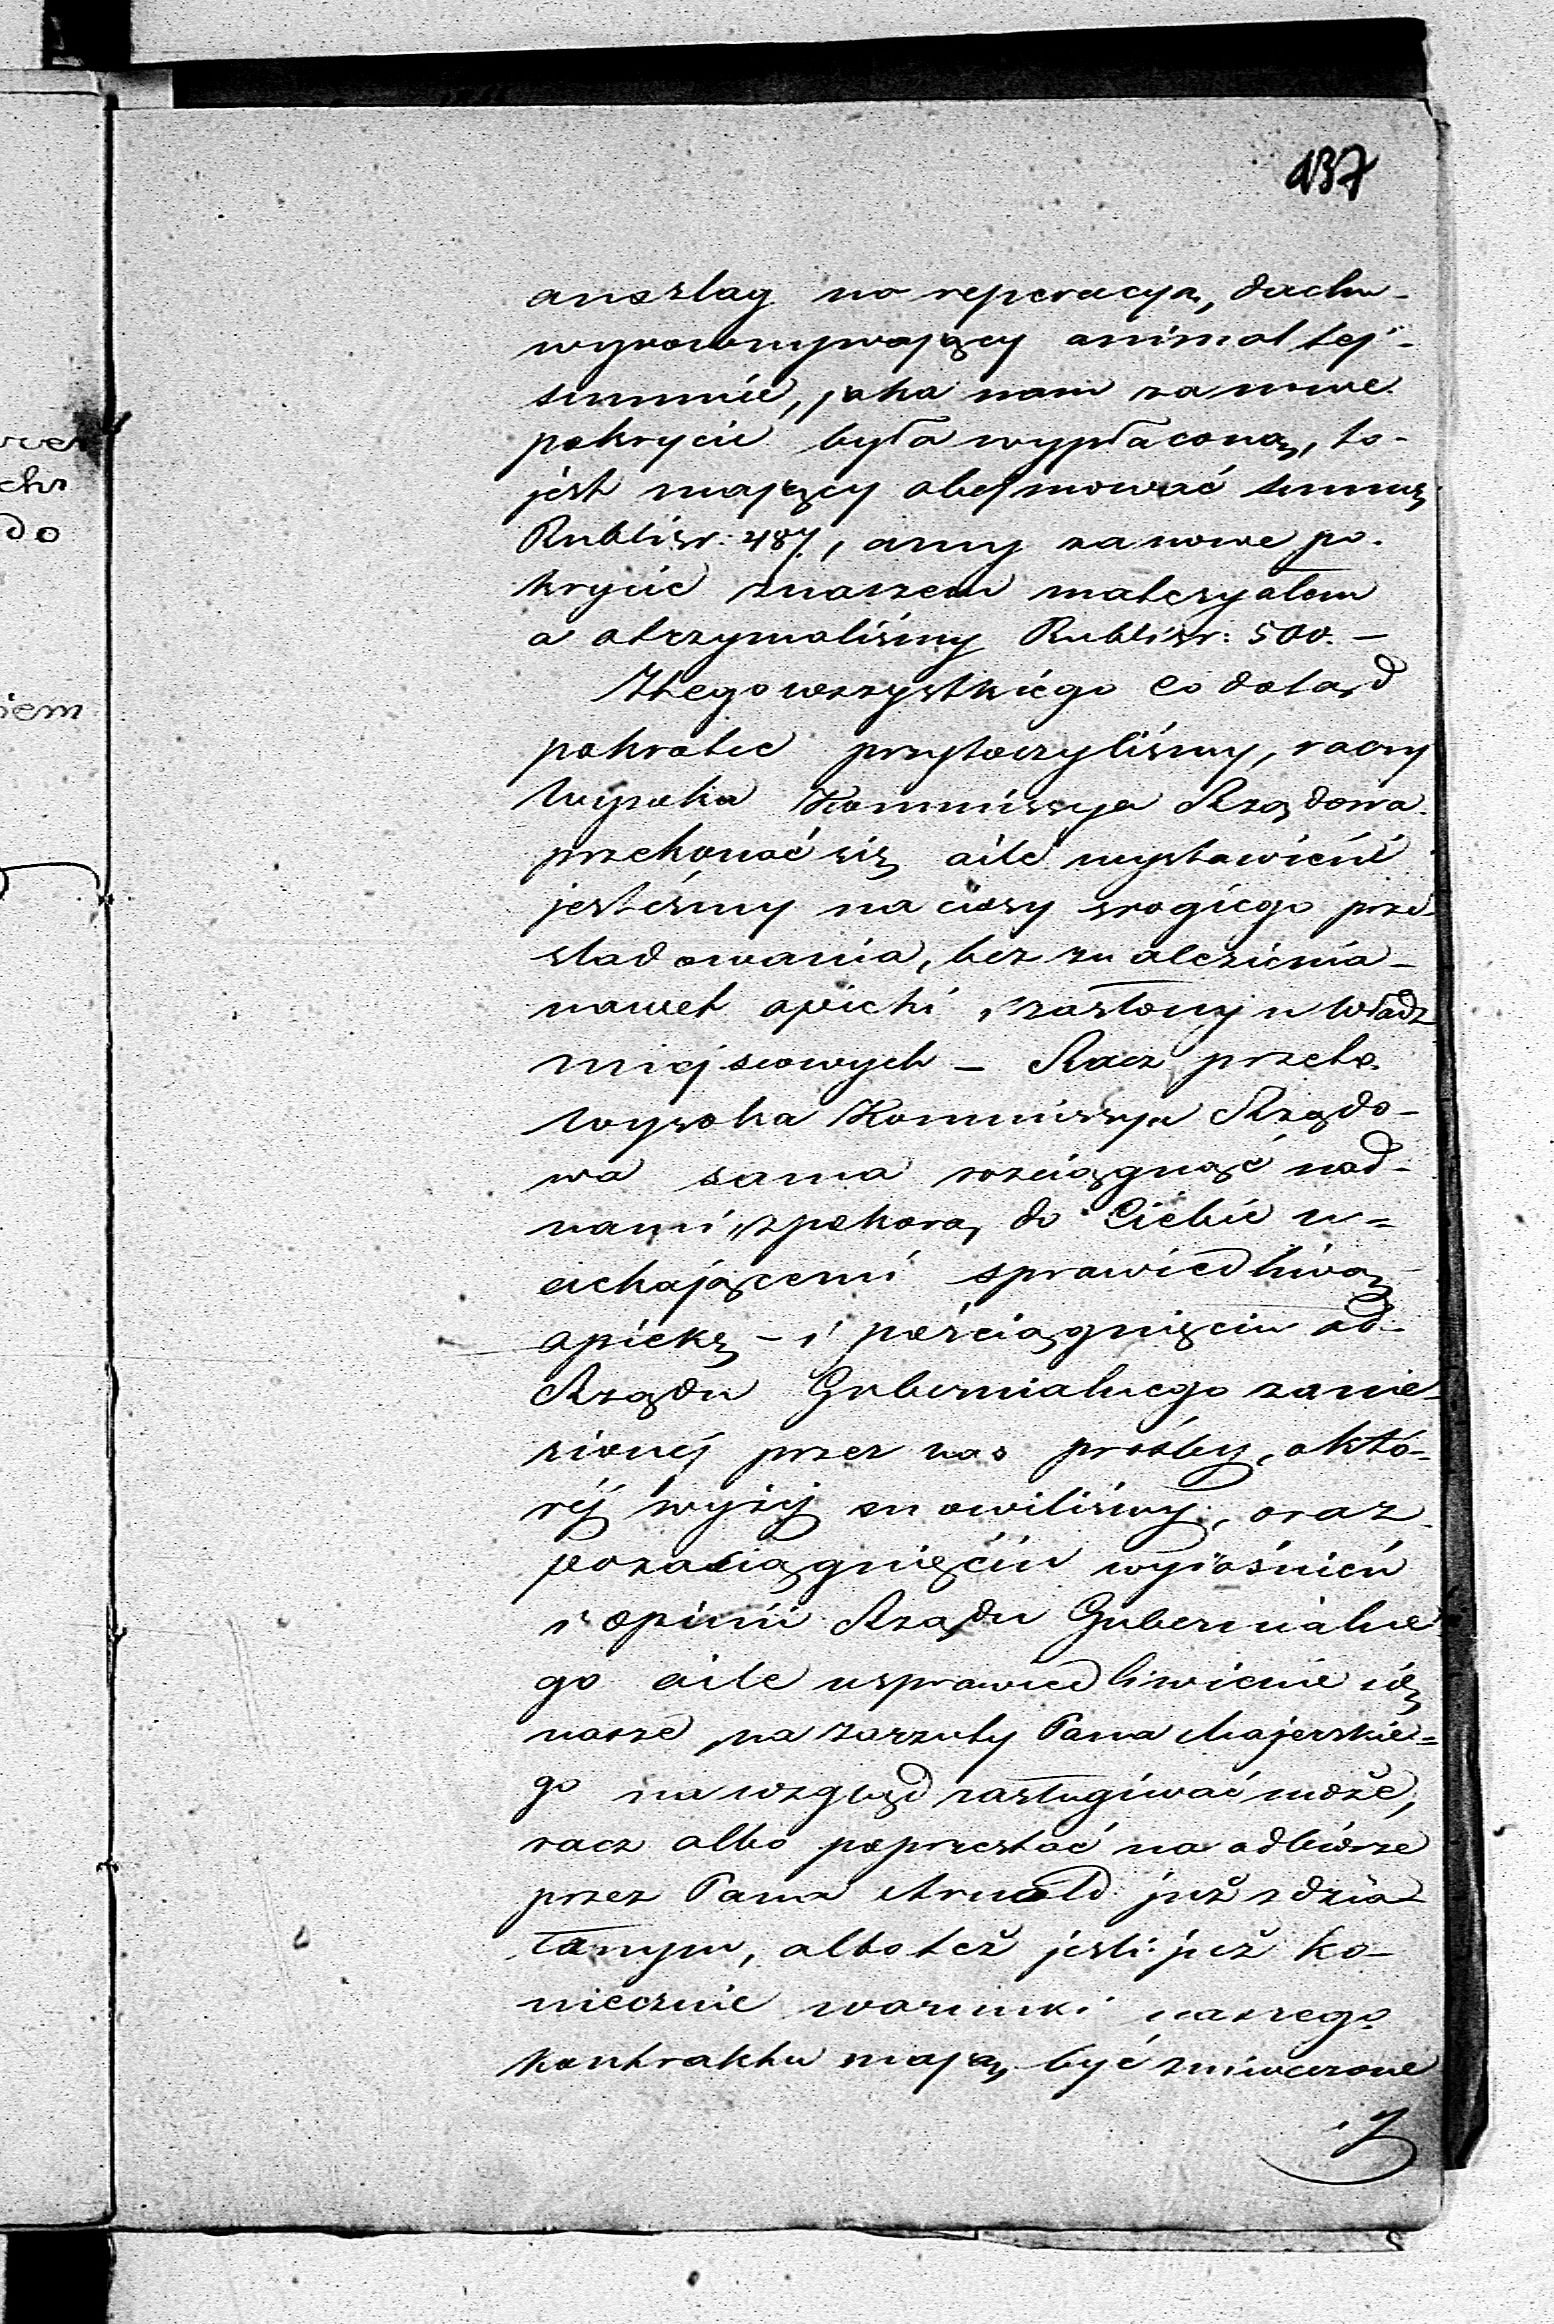 137
anszlag na reperacyą, dachu
wyrownywający animal tej
summie, jaka nam za nowe
pokrycie była wypłaconą, to-
jest mający obejmować summę
Rublisr: 487, a my za nowe po-
krycie znaszem materyałem
a otrzymaliśmy Rublisr: 500. –
Ztego wszystkiego co dotąd
pokrotce przytoczyliśmy, raczy
Wysoka Kommissya Rządowa
przekonać się aile wystawieni
jesteśmy na ciosy srogiego prze-
sladowania, bez znalezienia –
nawet opieki i zasłony u Władz
miejscowych – Racz przeto
Wysoka Kommissya Rządo-
wa sama rosciągnąć nad-
nami, zpokorą do Ciebie u=
ciekającemi sprawiedliwą
opiekę – i pościągnięciu od-
Rządu Gubernialnego zanie-
sionej przez nas prośby, o któ-
réj wyżej mowiliśmy, oraz
pozaciągnięciu wyiaśnień
i opinii Rządu Gubernialne
go aile usprawiedliwienie się
nasze na zarzuty Pana Majerskie=
go na wzgląd zasługiwać może,
racz albo poprzestać na odbiorze
przez Pana Arnold już zdzia-
łanym, albo też jesli już ko-
niecznie warunki naszego
kontraktu mają być zniweczone